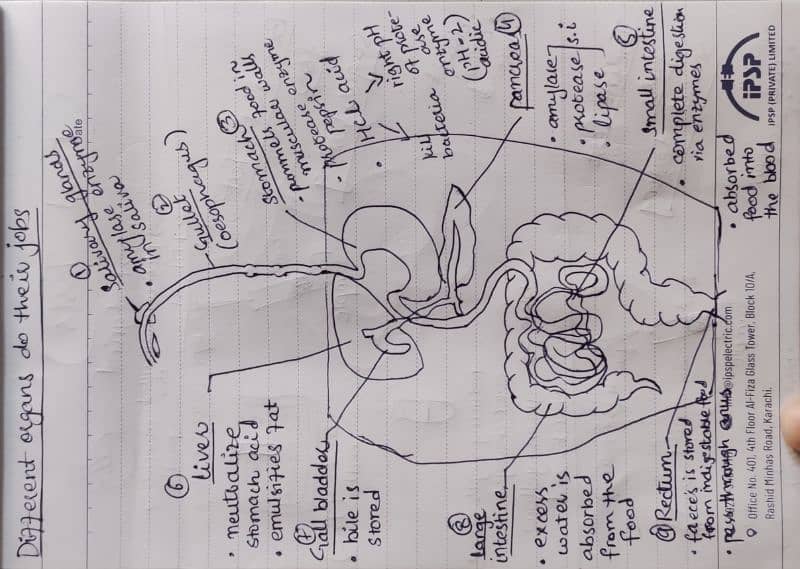 Different organs do their jobs
Date
①
Salivary glands
enzyme
• amylase
in saliva
②
Gullet
(oesophagus)
③
Stomach
• pummels food in
muscular walls
• protease enzyme
pepsin
• HCL acid
kill
bacteria
right pH
of prote-
ase
enzyme
(pH=2)
(acidic
④
pancreas
• amylase
• protease
• lipase
s.i
⑤
Small intestine
• complete digestion
via enzymes
• absorbed
food into
the blood
⑥
liver
• neutralize
stomach acid
• emulsifies fat
⑦
Gall bladder
• bile is
stored
⑧
large
intestine
• excess
water is
absorbed
from the
food
⑨ Rectum
• faeces is stored
from indigestable food
• pass through anus
IPSP
IPSP (PRIVATE) LIMITED
@ipspelectric.com
Office No. 401, 4th Floor Al-Fiza Glass Tower, Block 10/A,
Rashid Minhas Road, Karachi.